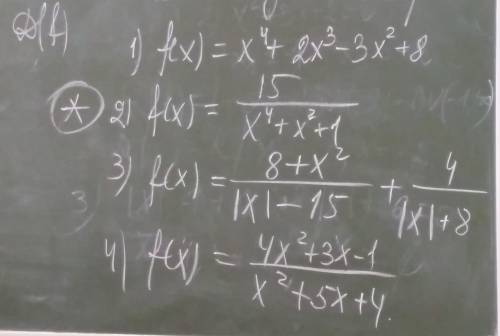 D(f)
1) f(x) = x⁴ + 2x³ - 3x² + 8
* 2) f(x) = 15 / (x⁴ + x² + 1)
3) f(x) = (8 + x²) / (|x| - 15) + 4 / (|x| + 8)
4) f(x) = (4x² + 3x - 1) / (x² + 5x + 4).